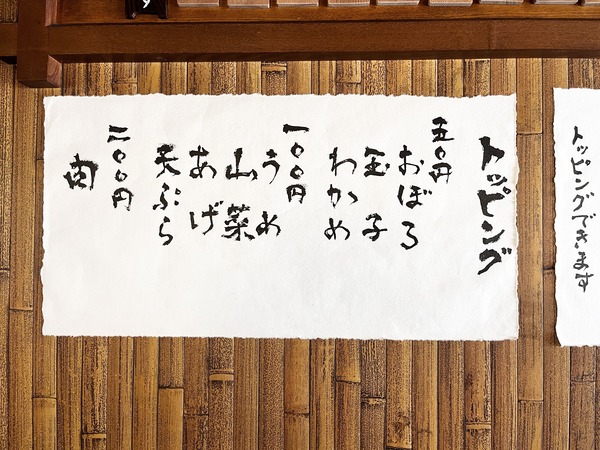 トッピング
五〇円
おぼろ
玉子
わかめ
一〇〇円
うめ
山菜
あげ
天ぷら
二〇〇円
肉
トッピングできます